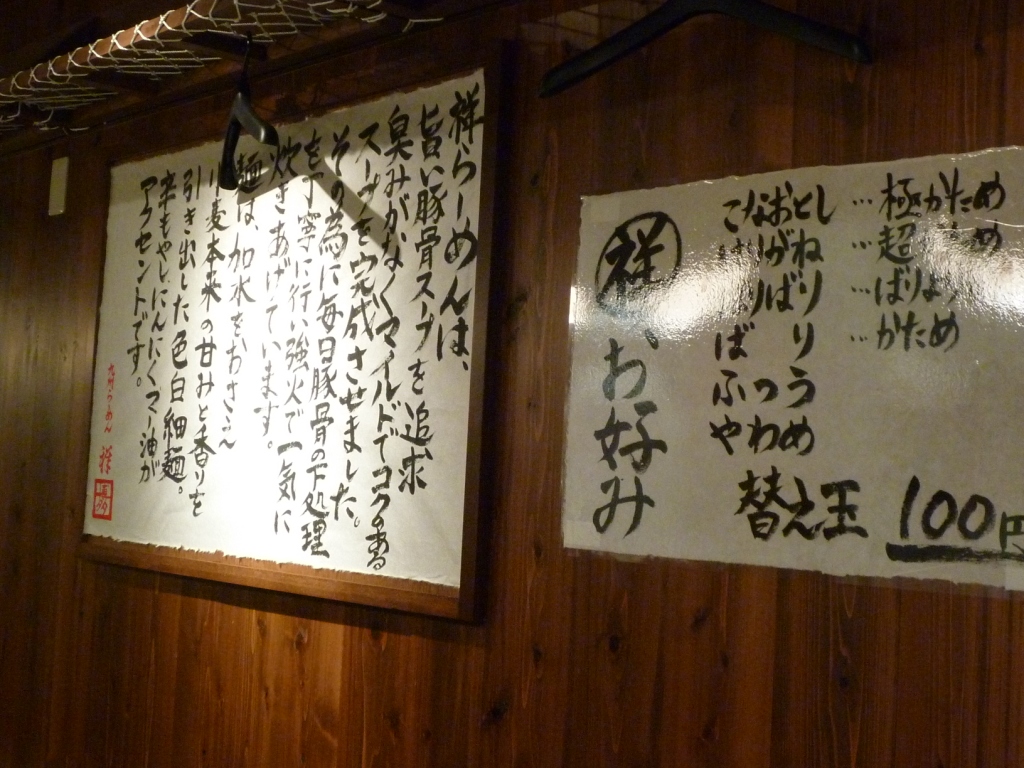 祥らーめんは、
旨い豚骨スープを追求
臭みがなくマイルドでコクある
スープを完成させました。
その為に毎日豚骨の下処理
を丁寧に行い強火で一気に
炊きあげています。
麺は、加水をおさえ
小麦本来の甘みと香りを
引き出した色白細麺。
辛もやしにんにくマー油が
アクセントです。
九州らーめん 祥
祥、お好み
こなおとし …極かため
はりがね …超かため
ばりばり
ばり …かため
ふつう
やわめ
替え玉 100円